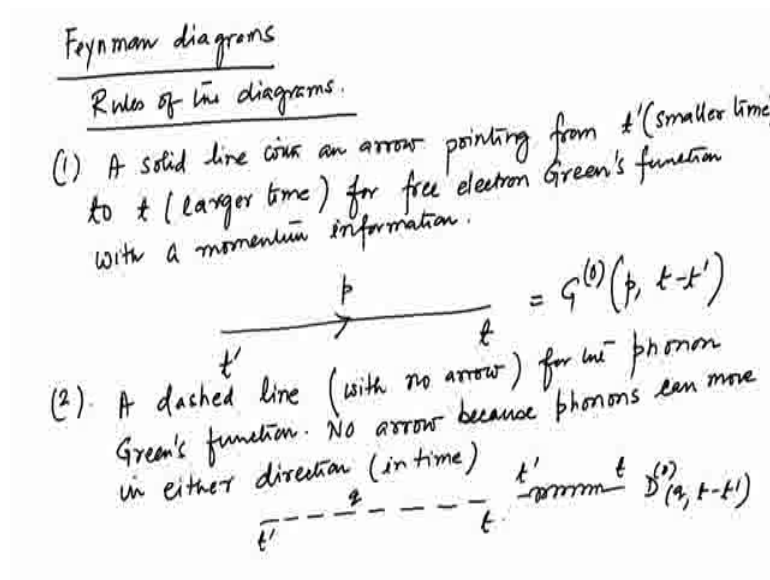 Feynman diagrams
Rules of the diagrams.
(1) A solid line with an arrow pointing from t' (smaller time)
to t (larger time) for free electron Green's function
with a momentum information.
p
t' t = G^(0)(p, t-t')
(2). A dashed line (with no arrow) for the phonon
Green's function. No arrow because phonons can move
in either direction (in time)
t' q t. t' t D^(0)(q, t-t')